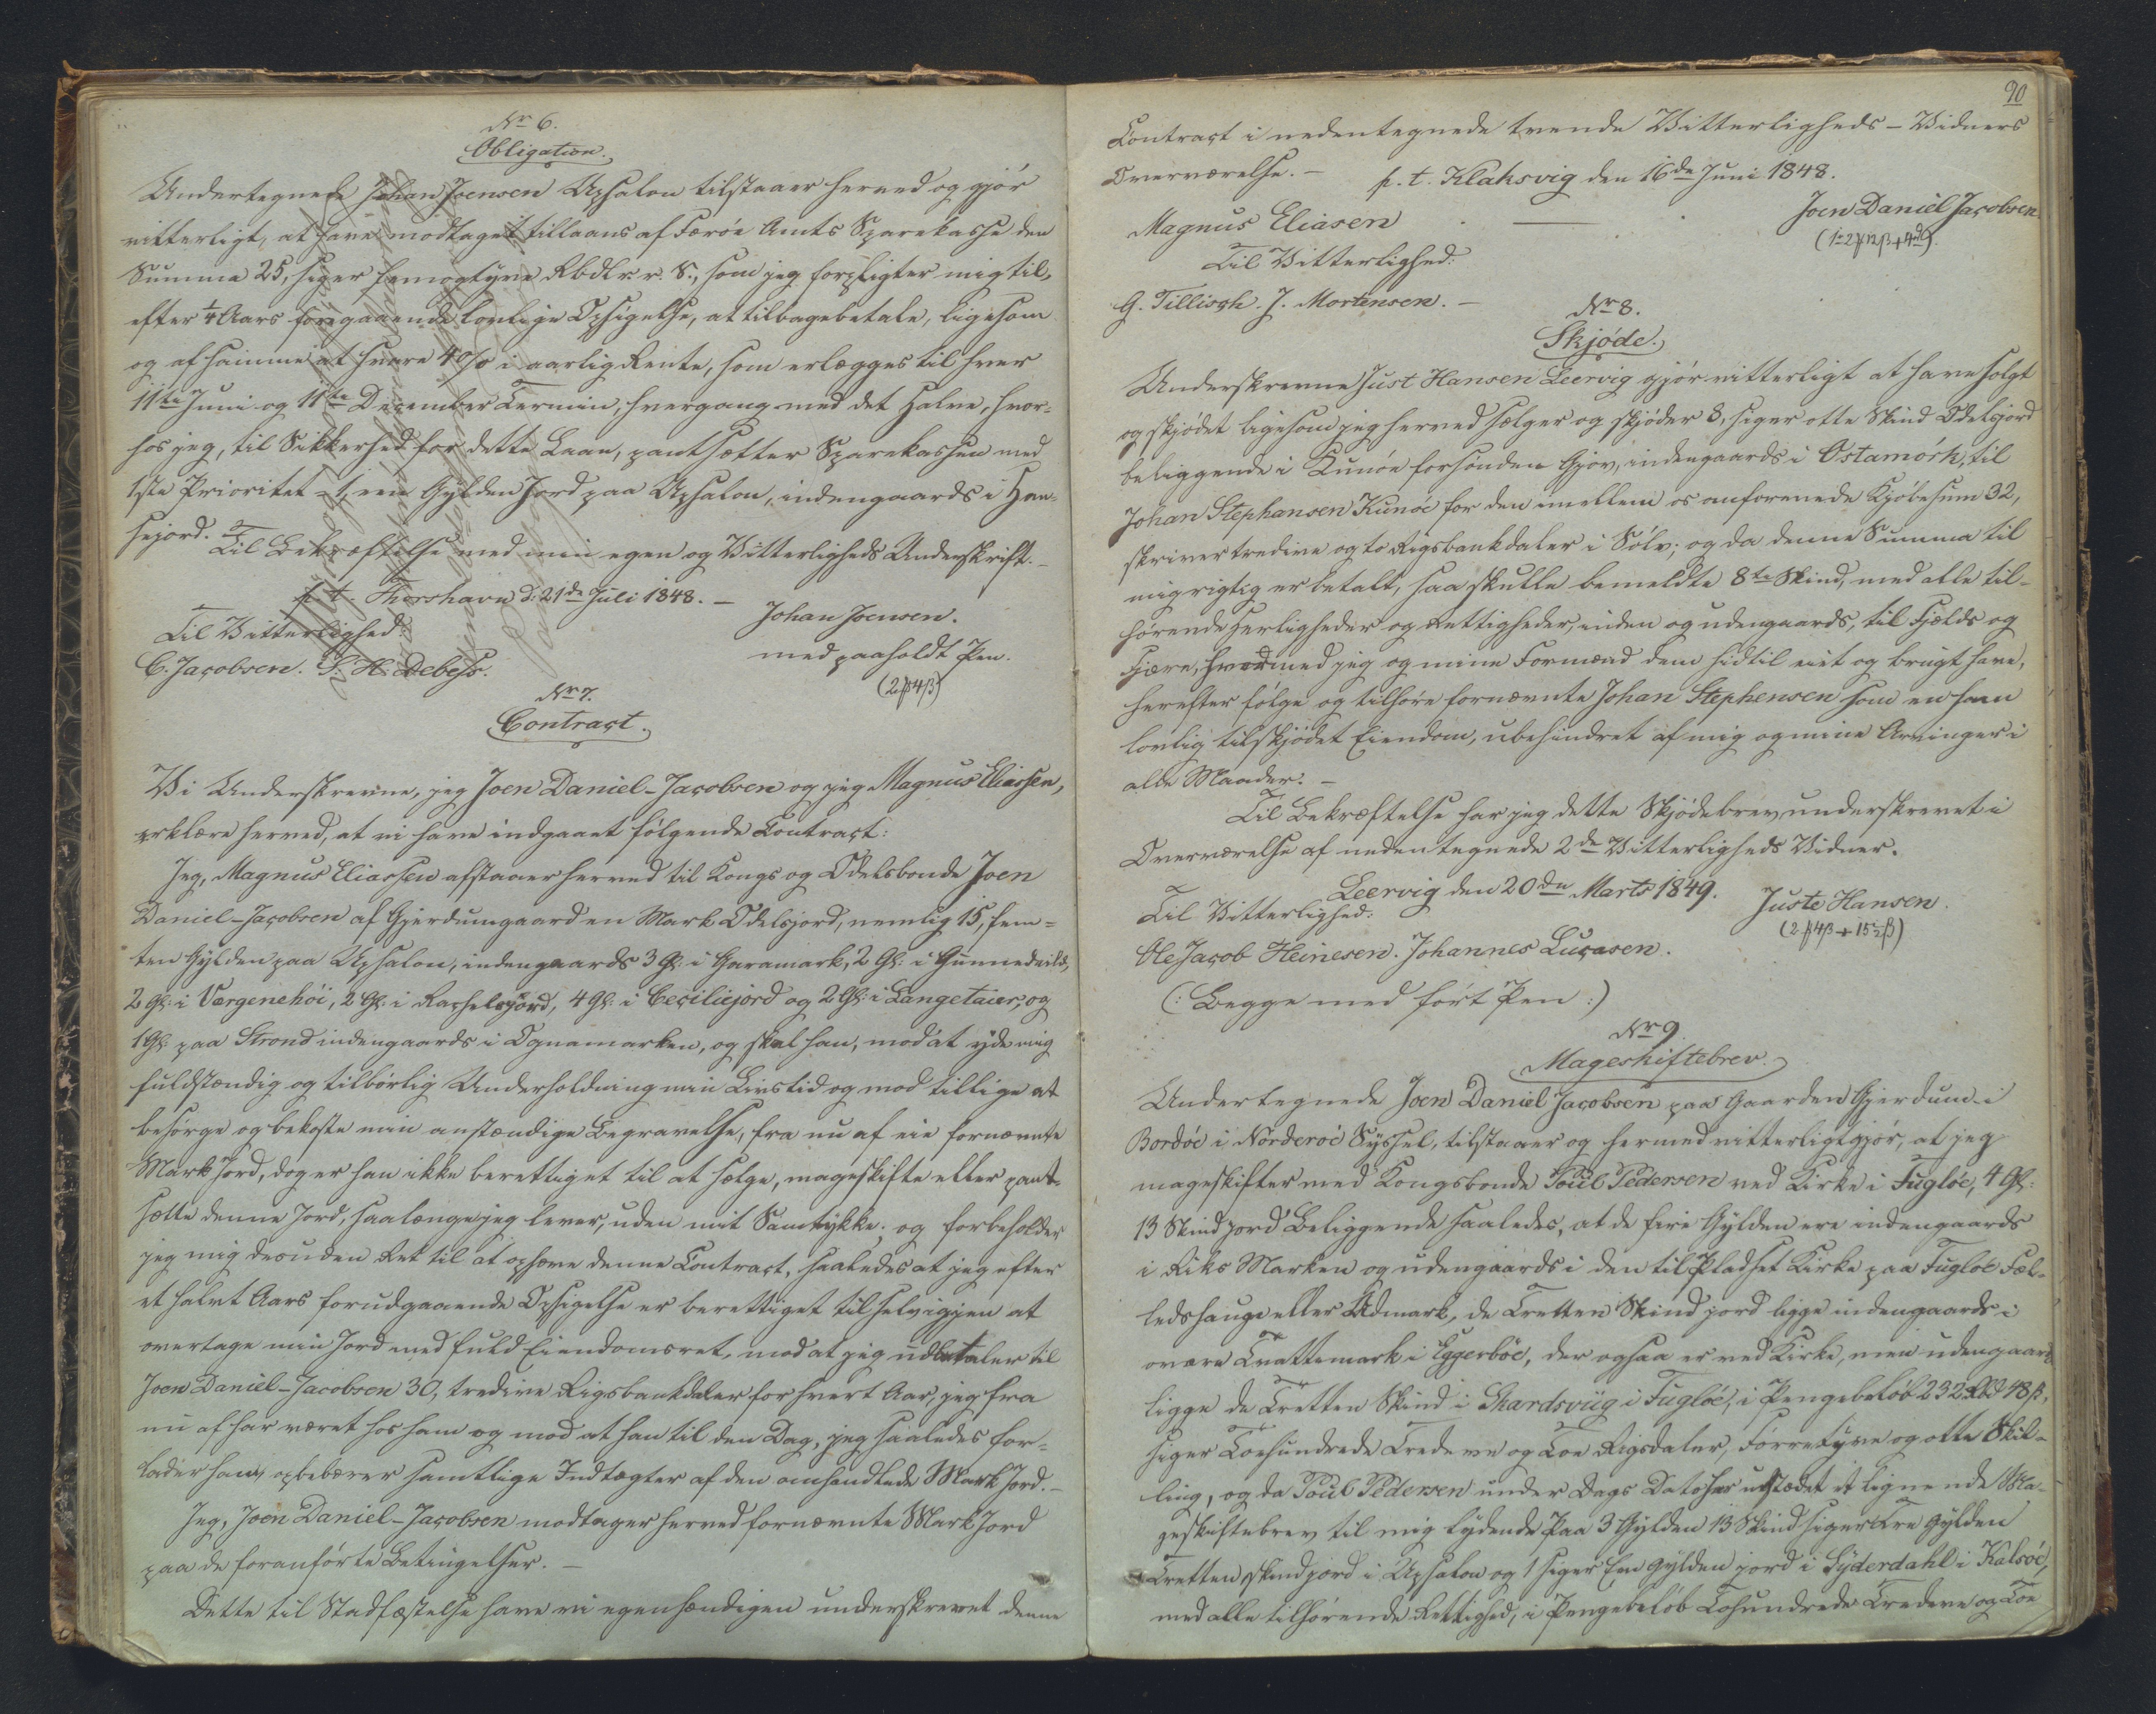 Nr 6.
Obligation.
Undertegnede Johan Joensen Upsalon tilstaaer herved og gjør
vitterligt, at have modtaget tillaans af Færöe Amts Sparekasse den
Summa 25, siger femogtyve Rbdlr r. S., som jeg forpligter mig til,
efter 1/4 Aars foregaaende lovlige Opsigelse, at tilbagebetale, ligesom
og af samme at svare 4 o/o i aarlig Rente, som erlægges til hver
11te Juni og 11te December Termin, hvergang med det Halve, hvor-
hos jeg, til Sikkerhed for dette Laan, pantsætter Sparekassen med
1ste Prioritet 1, een Gylden Jord paa Upsalon, indengaards i Han-
sejord.
Til Bekræftelse med min egen og Vitterligheds Underskrift. –
p. t. Thorshavn d: 21de Juli 1848. –
Til Vitterlighed:
Johan Joensen.
C. Jacobsen. S. H. Debess.
med paaholdt Pen.
(2 ß 4 ß)
Nr 7.
Contract.
Vi Underskrevne, jeg Joen Daniel-Jacobsen og jeg Magnus Eliassen,
erklære herved, at vi have indgaaet følgende Contract:
Jeg, Magnus Eliassen afstaaer herved til Kongs og Odelsbonde Joen
Daniel-Jacobsen af Gjerdumgaard en Mark Odelsjord, nemlig 15, fem-
ten Gylden paa Upsalon, indengaards 3 Gl: i Garamark, 2 Gl: i
2 Gl: i Vargenehöi, 2 Gl: i Rachelsjord, 4 Gl: i Ceciliejord og 2 Gl: i Langetaier, og
1 Gl: paa Strond indengaards i Ognamarken, og skal han, mod at yde mig
fuldstændig og tilbørlig Underholdning min Livstid og mod tillige at
besørge og bekoste min anstændige Begravelse, fra nu af eie fornævnte
Mark Jord, dog er han ikke berettiget til at sælge, mageskifte eller pant-
sætte denne Jord, saalænge jeg lever, uden mit Samtykke, og forbeholder
jeg mig desuden Ret til at ophæve denne Contract, saaledes at jeg efter
et halvt Aars forudgaaende Opsigelse er berettiget til selv igjen at
overtage min Jord med fuld Eiendomsret, mod at jeg udbetaler til
Joen Daniel-Jacobsen 30, tredive Rigsbankdaler for hvert Aar, jeg fra
nu af har været hos ham og mod at han til den Dag, jeg saaledes for-
lader ham, oppebærer samtlige Indtægter af den omhandlede Mark Jord. –
Jeg, Joen Daniel-Jacobsen modtager herved fornævnte Mark Jord
paa de foranførte Betingelser. –
Dette til Stadfæstelse have vi egenhændigen underskrevet denne
90
Contract i nedentegnede tvende Vitterligheds-Vidners
Overværelse. –
p. t. Klaksvig den 16de Juni 1848.
Magnus Eliasen
Joen Daniel Jacobsen
Til Vitterlighed:
G. Tillisch. J. Mortensen. –
Nr 8.
Skjöde.
Underskrevne Just Hansen Leervig gjør vitterligt at have solgt
og skjødet ligesom jeg herved sælger og skjøder 8, siger otte Skind Odelsjord
beliggende i Kunöe forsönden Gjov, indengaards i Östamörk, til
Johan Stephansen Kunöe for den imellem os anforenede Kjøbesum 32,
skriver tredive og to Rigsbankdaler i Sølv; og da denne Summa til
mig rigtig er betalt, saa skulle bemeldte 8te Skind, med alle til-
hørende Herligheder og Rettigheder, inden og udengaards, til Fjelds og
Fjære, hvormed jeg og mine Formænd dem hidtil eiet og brugt have,
herefter følge og tilhøre fornævnte Johan Stephensen som en ham
lovlig tilskjødet Eiendom, ubehindret af mig og mine Arvinger i
alle Maader. –
Til Bekræftelse har jeg dette Skjødebrev underskrevet i
Overværelse af nedentegnede 2de Vitterligheds Vidner.
Leervig den 20de Marts 1849.
Til Vitterlighed:
Juste Hansen.
(2 ß 4 ß + 15 1/2 ß)
Ole Jacob Heinesen. Johannes Lucasen.
(: Begge med ført Pen :)
Nr 9
Mageskiftebrev.
Undertegnede Joen Daniel Jacobsen paa Gaarden Gjerdum i
Bordöe i Norderöe Syssel, tilstaaer og hermed vitterligtgjør, at jeg
mageskifter med Kongsbonde Poul Pedersen ved Kirke i Fuglöe, 4 Gl:
13 Skind jord Beliggende saaledes, at de fire Gylden ere indengaards
i Riks Marken og udengaards i den til Pladset Kirke paa Fugloe Fæl-
ledshauge eller Udmark, de Tretten Skind jord ligge indengaards i
overe Trattemark i Eggerböe, der ogsaa er ved Kirke, men udengaards
ligge de Tretten Skind i Skardsviig i Fuglöe, i Pengebeløb 232 Rbd 48 ß,
siger Toehundrede Tredeve og Toe Rigsdaler, Førretyve og otte Skil-
ling, og da Poul Pedersen under Dags Dato har udstædet et lignende Ma-
geskiftebrev til mig lydende Paa 3 Gylden 13 Skind siger Tre Gylden
Tretten skind jord i Upsalon og 1 siger Een Gylden jord i Syderdahl i Kalsöe,
med alle tilhørende Rettighed, i Pengebeløb Tohundrede Tredeve og Toe